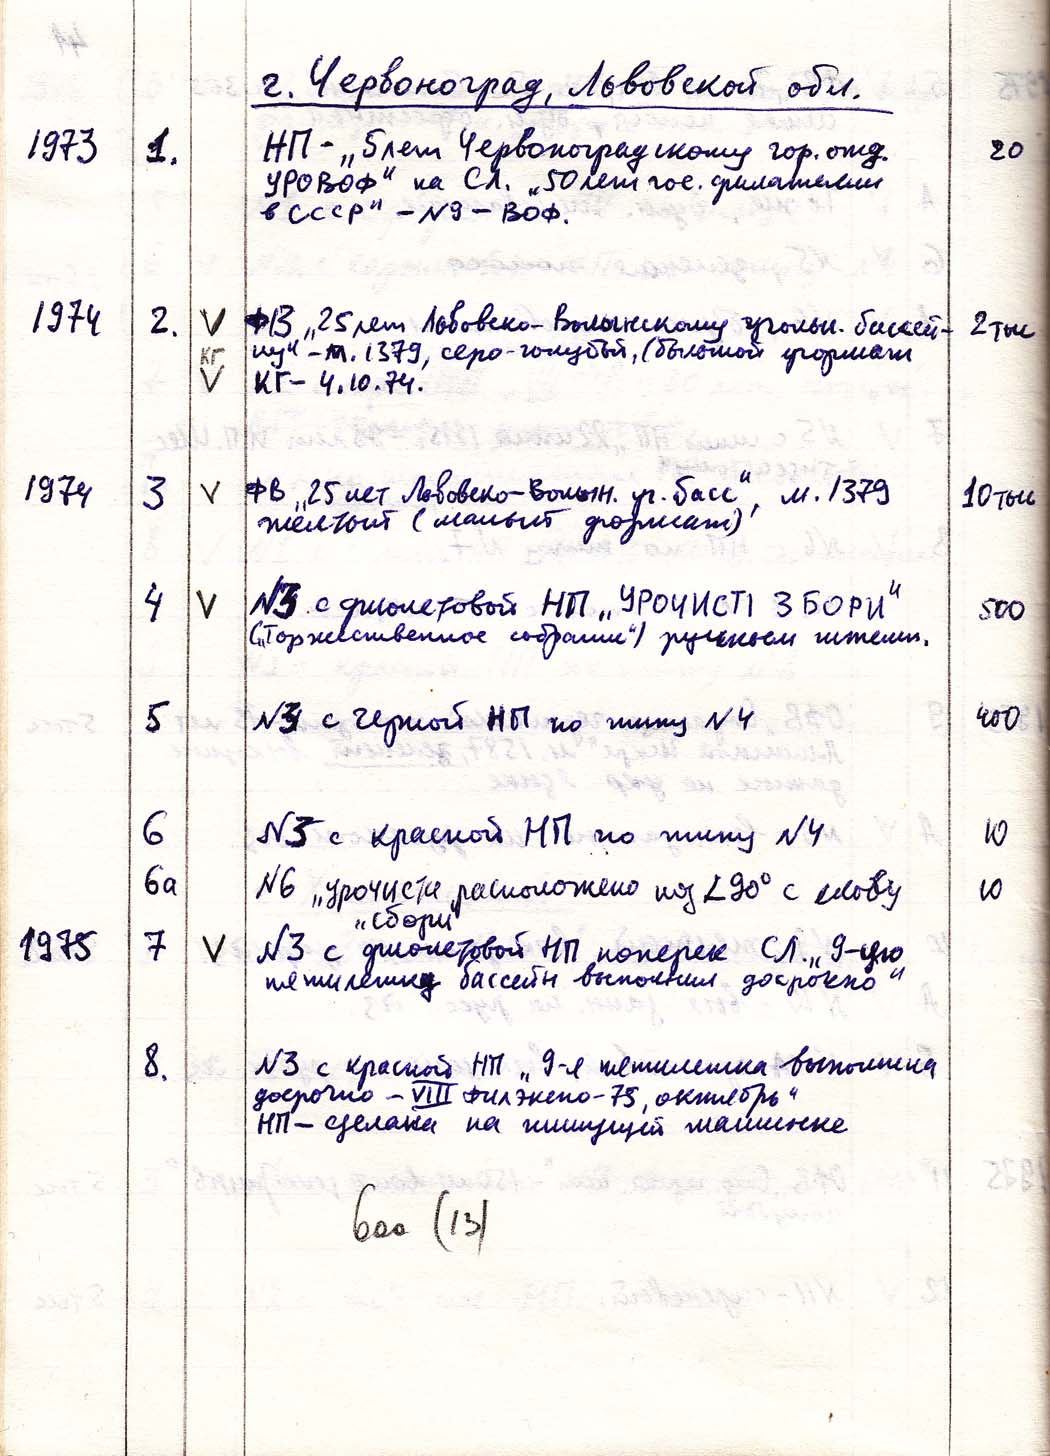 г. Червоноград, Львовской обл.
1973 1. НП - „5 лет Червоноградскому гор. отд. 20
УРОВОФ" на СЛ. „50 лет гос. филателии
в СССР" - №9 - ВОФ.
1974 2. V ФВ „25 лет Львовско-Волынскому угольн. бассей- 2 тыс
КГ ну" - м. 1379, серо-голубой, (большой формат
V КГ - 4.10.74.
1974 3 V ФВ „25 лет Львовско-Волын. уг. басс", м. 1379 10 тыс
жёлтый (малый формат)
4 V №3 с фиолетовой НП „УРОЧИСТІ ЗБОРИ" 500
(„Торжественное собрание") ручным штемп.
5 №3 с черной НП по типу №4 400
6 №3 с красной НП по типу №4 10
6а №6 „урочисти расположено под ∠90° с слову 10
„сбори"
1975 7 V №3 с фиолетовой НП поперек СЛ. „9-цю
пятилетку бассейн выполнил досрочно"
8. №3 с красной НП „9-я пятилетка выполнена
досрочно - VIII Филэкспо-75, октябрь"
НП - сделана на пишущей машинке
(13)